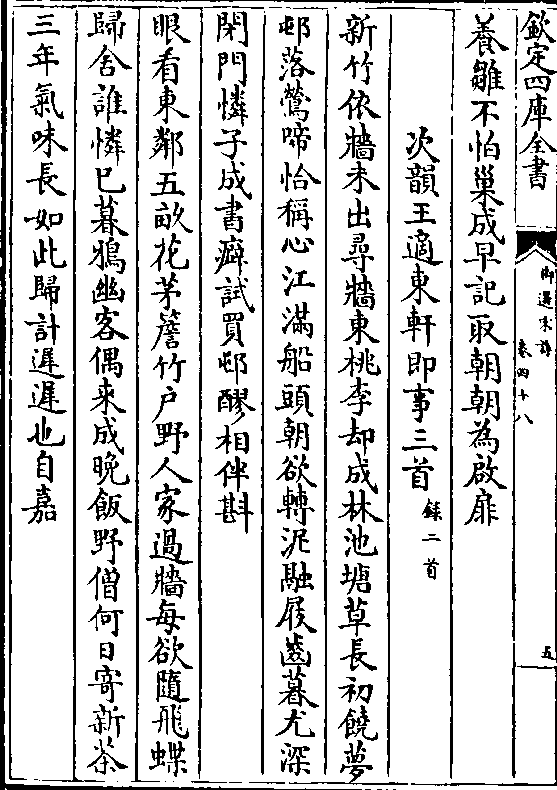 欽定四庫全書
御選宋詩
卷四十八
五
養雛不怕巢成早記取朝朝為啟扉
次韻王適東軒即事三首 錄二首
新竹依牆未出尋牆東桃李却成林池塘草長初饒夢
邨落鶯啼恰稱心江滿船頭朝欲轉泥融屐齒暮尤深
閉門憐子成書癖試買邨醪相伴斟
眼看東鄰五畝花茅簷竹户野人家過牆每欲隨飛蝶
歸舍誰憐已暮鴉幽客偶來成晚飯野僧何日寄新茶
三年氣味長如此歸計遲遲也自嘉